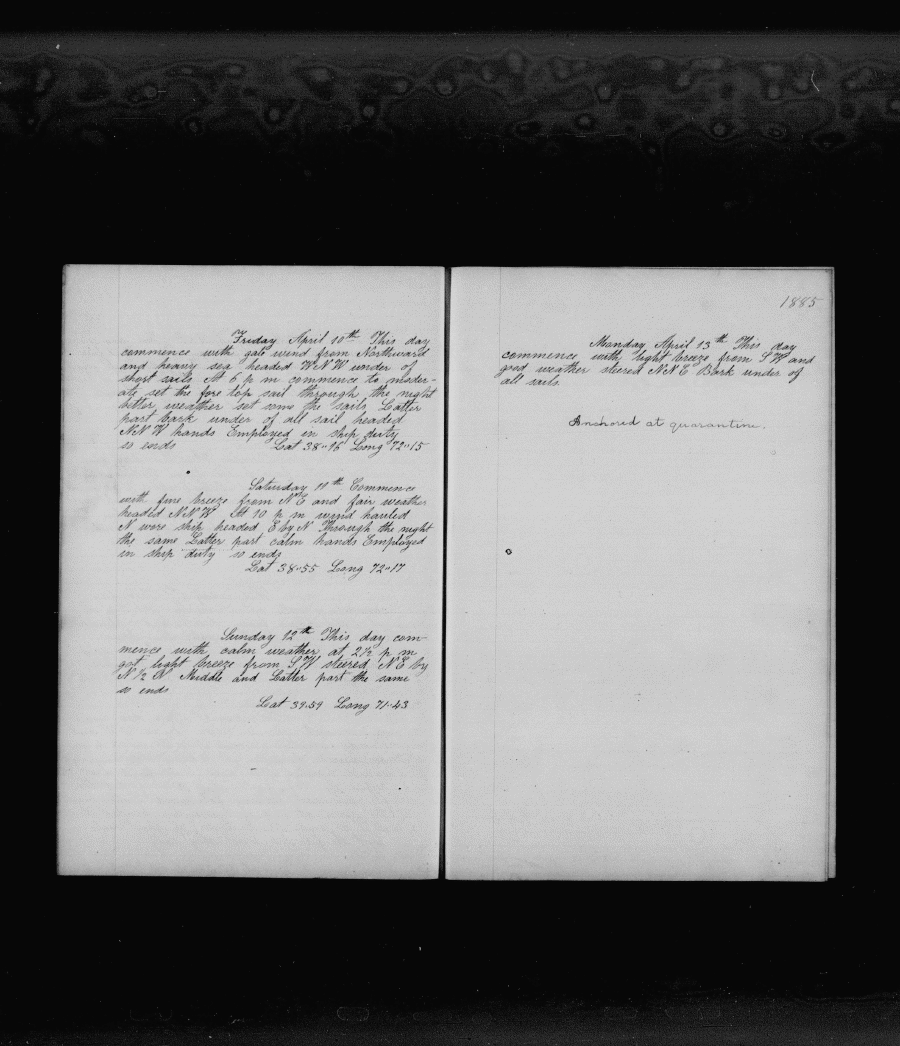 Friday April 10th This day
commence with gale wind from Northward
and heavy sea headed WNW under of
short sails At 6 p m commence to moder-
ate set the fore top sail through the night
better weather set some the sails Latter
part bark under of all sail headed
NNW hands Employed in ship duty
so ends Lat 38"16 Long 72"15
Saturday 11th Commence
with fine breeze from NE and fair weather
headed NNW At 10 p m wind hauled
N wore ship headed E by N Through the night
the same Latter part calm hands Employed
in ship duty so ends
Lat 38"55 Long 72"17
Sunday 12th This day com-
mence with calm weather at 2½ p m
got light breeze from SW steered NE by
N ½ N Middle and Latter part the same
so ends
Lat 39"59 Long 71"43
1885
Monday April 13th This day
commence with light breeze from SW and
good weather steered NNE Bark under of
all sails
Anchored at quarantine.